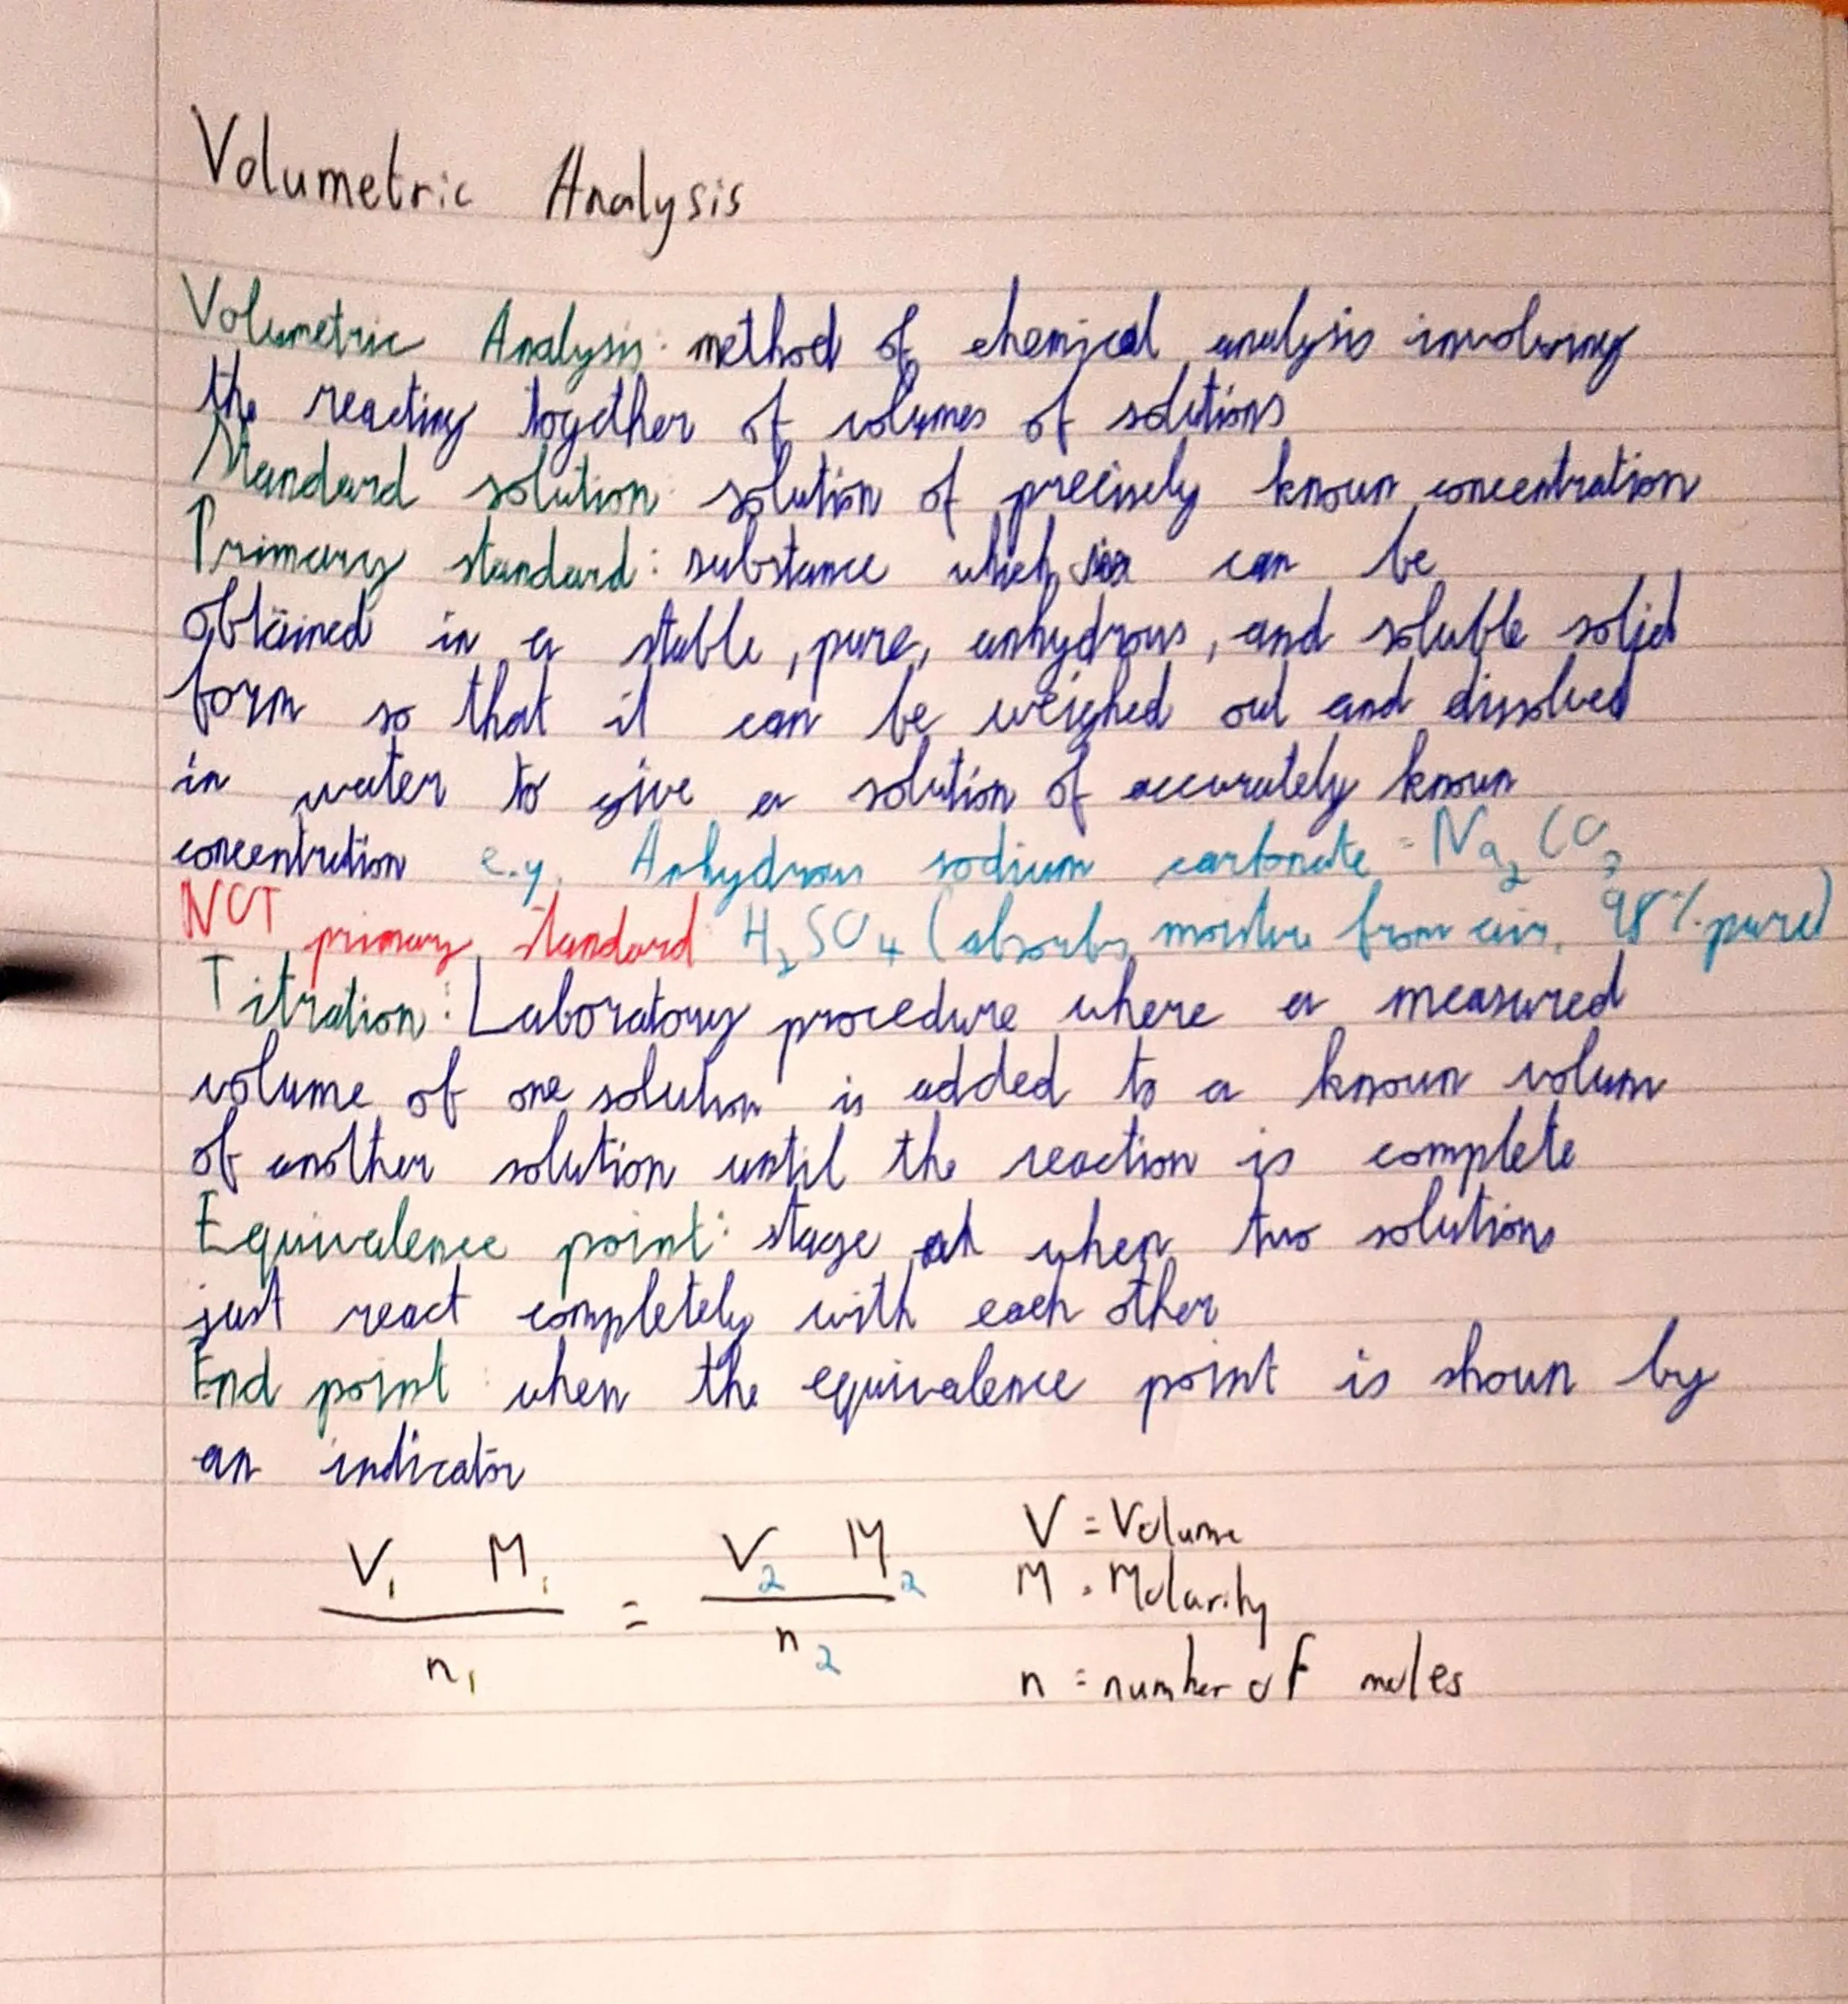 Volumetric Analysis
Volumetric Analysis: method of chemical analysis involving
the reacting together of volumes of solutions
Standard solution: solution of precisely known concentration
Primary standard: substance which can be
obtained in a stable, pure, anhydrous, and soluble solid
form so that it can be weighed out and dissolved
in water to give a solution of accurately known
concentration e.g. Anhydrous sodium carbonate = Na₂CO₃
NOT primary standard: H₂SO₄ (absorbs moisture from air, 98% pure)
Titration: Laboratory procedure where a measured
volume of one solution is added to a known volum
of another solution until the reaction is complete
Equivalence point: stage at when two solutions
just react completely with each other
End point: when the equivalence point is shown by
an indicator
V₁ M₁ / n₁ = V₂ M₂ / n₂
V = Volume
M = Molarity
n = number of moles